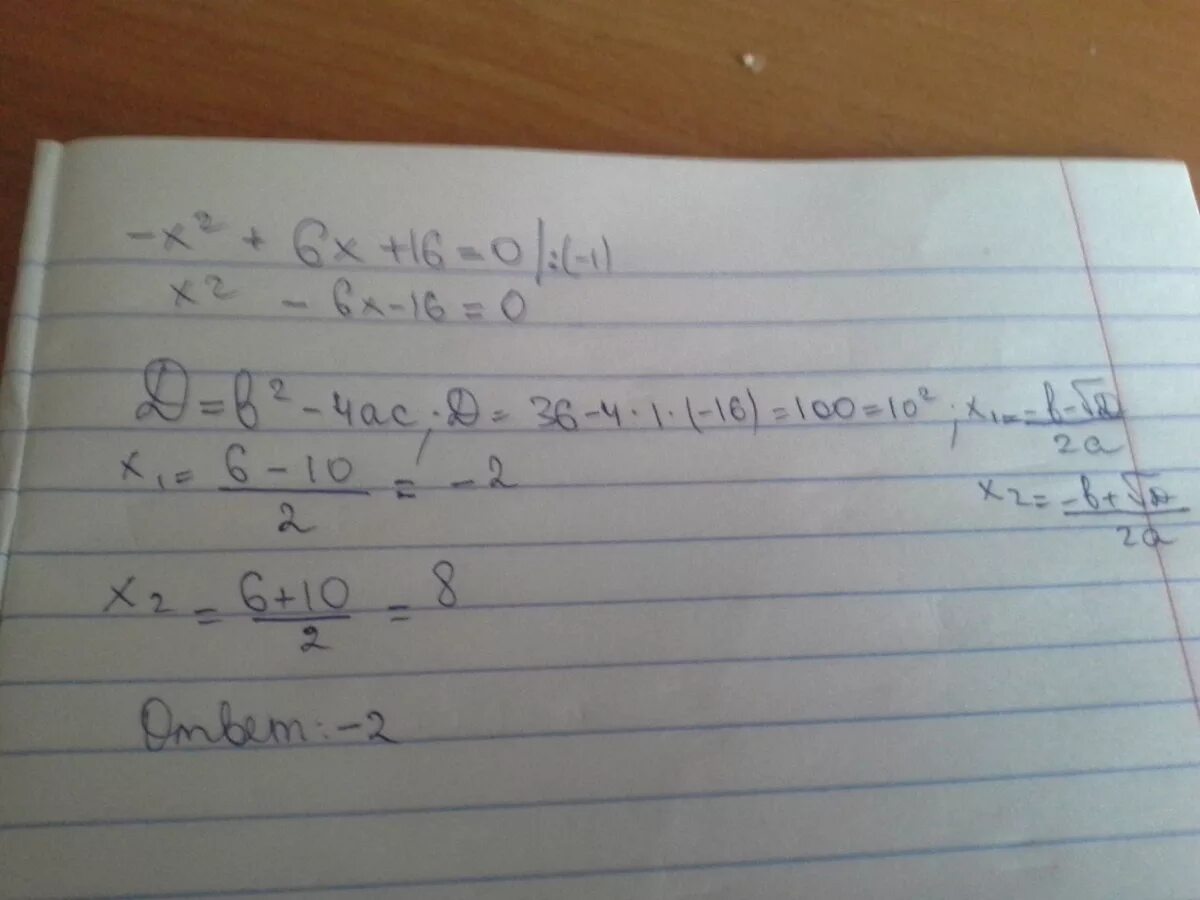 -x² + 6x + 16 = 0 |:(-1)
x² - 6x - 16 = 0
D = в² - 4ac; D = 36 - 4 · 1 · (-16) = 100 = 10²; x₁ = (-в - √D)/2a
x₁ = (6 - 10)/2 = -2
x₂ = (-в + √D)/2a
x₂ = (6 + 10)/2 = 8
Ответ: -2